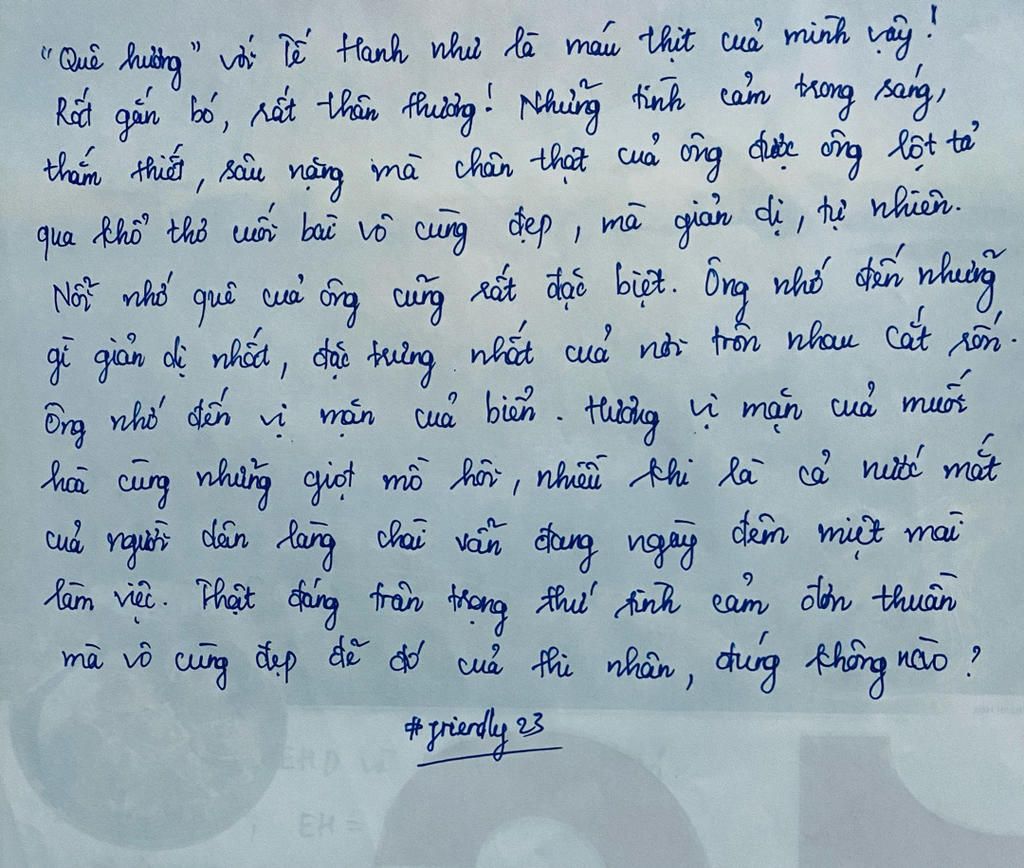 "Quê hương" với Tế Hanh như là máu thịt của mình vậy!
Rất gắn bó, rất thân thương! Những tình cảm trong sáng,
thắm thiết, sâu nặng mà chân thật của ông được ông lột tả
qua khổ thơ cuối bài vô cùng đẹp, mà giản dị, tự nhiên.
Nỗi nhớ quê của ông cũng rất đặc biệt. Ông nhớ đến những
gì giản dị nhất, đặc trưng nhất của nơi trôn nhau cắt rốn.
Ông nhớ đến vị mặn của biển. Hương vị mặn của muối
hoà cùng những giọt mồ hôi, nhiều khi là cả nước mắt
của người dân làng chài vẫn đang ngày đêm miệt mài
làm việc. Thật đáng trân trọng thứ tình cảm đơn thuần
mà vô cùng đẹp đẽ đó của thi nhân, đúng không nào?
#friendly 23
EH =